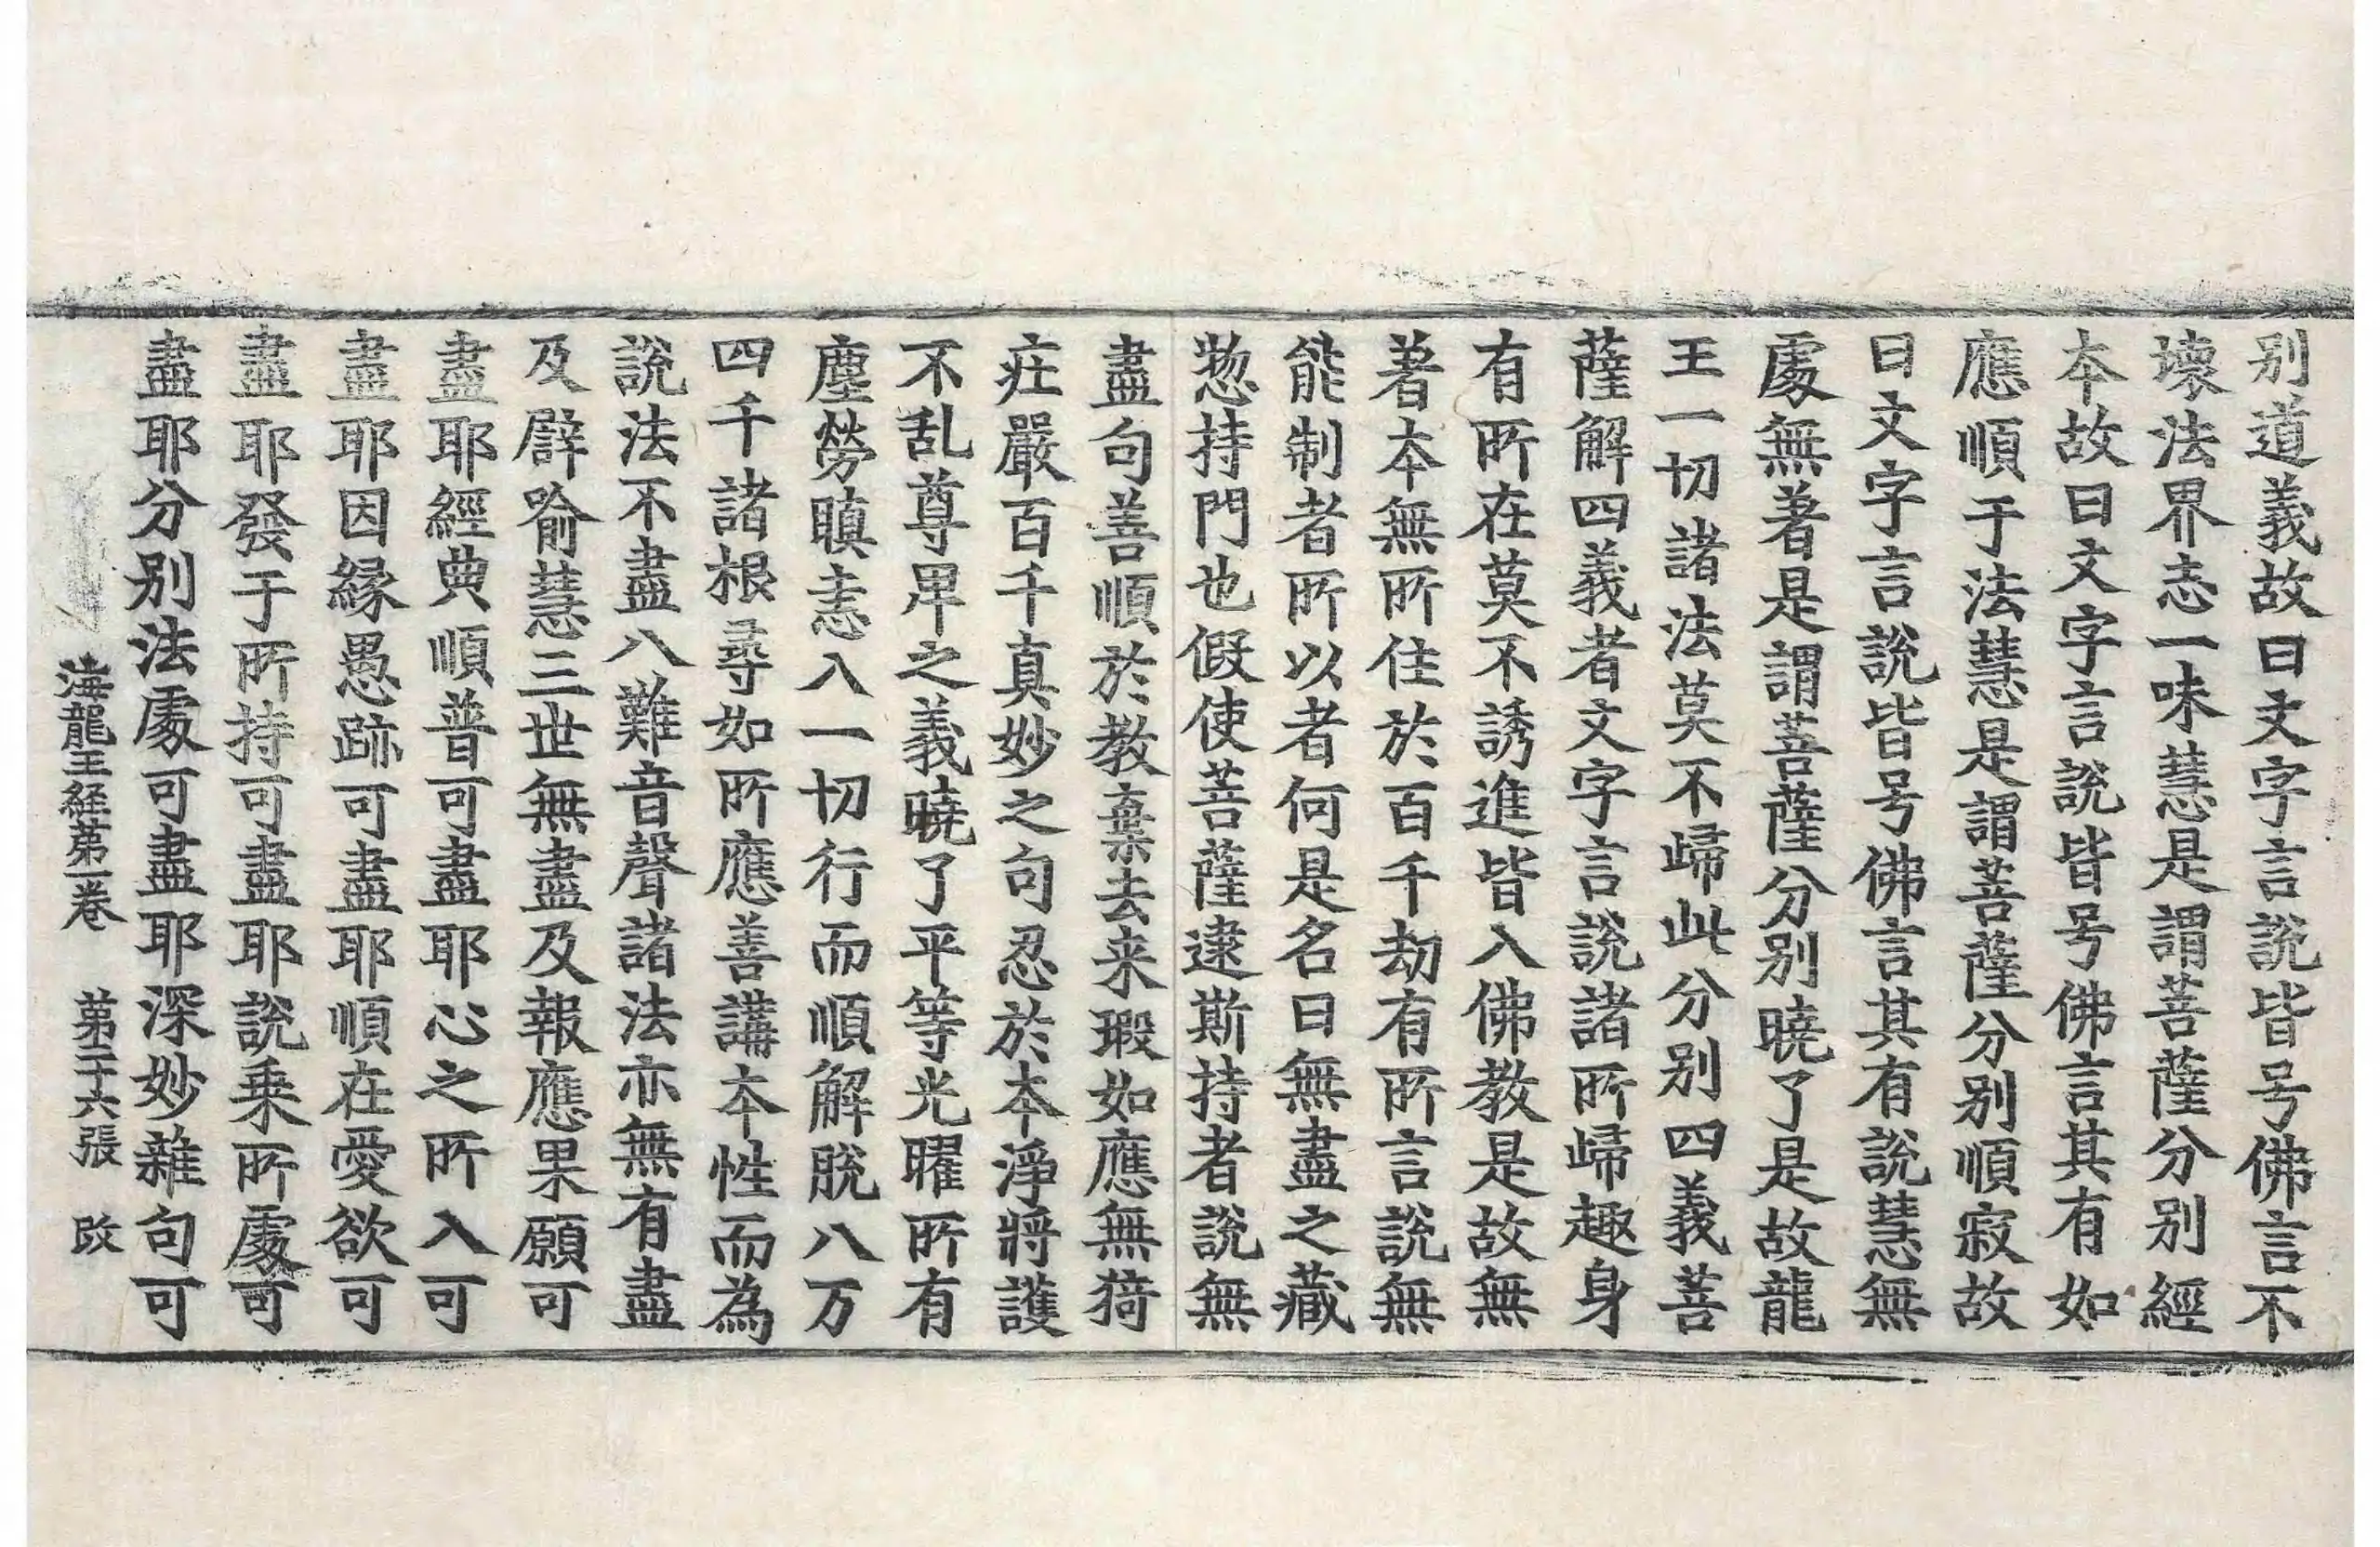 别道義故曰文字言說皆号佛言不
壞法界志一味慧是謂菩薩分别經
本故曰文字言說皆号佛言其有如
應順于法慧是謂菩薩分别順寂故
曰文字言說皆号佛言其有說慧無
處無著是謂菩薩分别曉了是故龍
王一切諸法莫不歸此分别四義菩
薩解四義者文字言說諸所歸趣身
有所在莫不誘進皆入佛教是故無
著本無所住於百千劫有所言說無
能制者所以者何是名曰無盡之藏
惣持門也假使菩薩逮斯持者說無
盡句善順於教棄去来瑕如應無猗
庄嚴百千真妙之句忍於本淨將護
不乱尊卑之義曉了平等光曜所有
塵勞瞋恚入一切行而順解脫八万
四千諸根尋如所應善講本性而為
說法不盡八難音聲諸法亦無有盡
及辟喻慧三世無盡及報應果願可
盡耶經典順普可盡耶心之所入可
盡耶因緣愚跡可盡耶順在愛欲可
盡耶發于所持可盡耶說乗所處可
盡耶分别法處可盡耶深妙雜句可
海龍王経第一卷 第二十六張 改